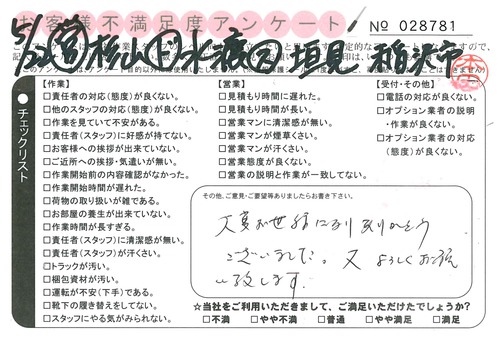 お客様不満足度アンケート
No 028781
5/22 営杉山 作水夜 垣見 稲沢市
チェックリスト
【作業】
□責任者の対応(態度)が良くない。
□他のスタッフの対応(態度)が良くない。
□作業を見ていて不安がある。
□責任者(スタッフ)に好感が持てない。
□お客様への挨拶が出来ていない。
□ご近所への挨拶・気遣いが無い。
□作業開始前の内容確認がなかった。
□作業開始時間が遅れた。
□荷物の取り扱いが雑である。
□お部屋の養生が出来ていない。
□作業時間が長すぎる。
□責任者(スタッフ)に清潔感が無い。
□責任者(スタッフ)が汗くさい。
□トラックが汚い。
□梱包資材が汚い。
□運転が不安(下手)である。
□靴下の履き替えをしてない。
□スタッフにやる気がみられない。
【営業】
□見積もり時間に遅れた。
□見積もり時間が長い。
□営業マンに清潔感が無い。
□営業マンが煙草くさい。
□営業マンが汗くさい。
□営業態度が良くない。
□営業の説明と作業が一致してない。
【受付・その他】
□電話の対応が良くない。
□オプション業者の説明
・作業が良くない。
□オプション業者の対応
(態度)が良くない。
その他、ご意見・ご要望等ありましたらお書き下さい。
大変お世話になりありがとう
ございました。又よろしくお願
い致します。
☆当社をご利用いただきまして、ご満足いただけたでしょうか?
□不満 □やや不満 □普通 □やや満足 □満足